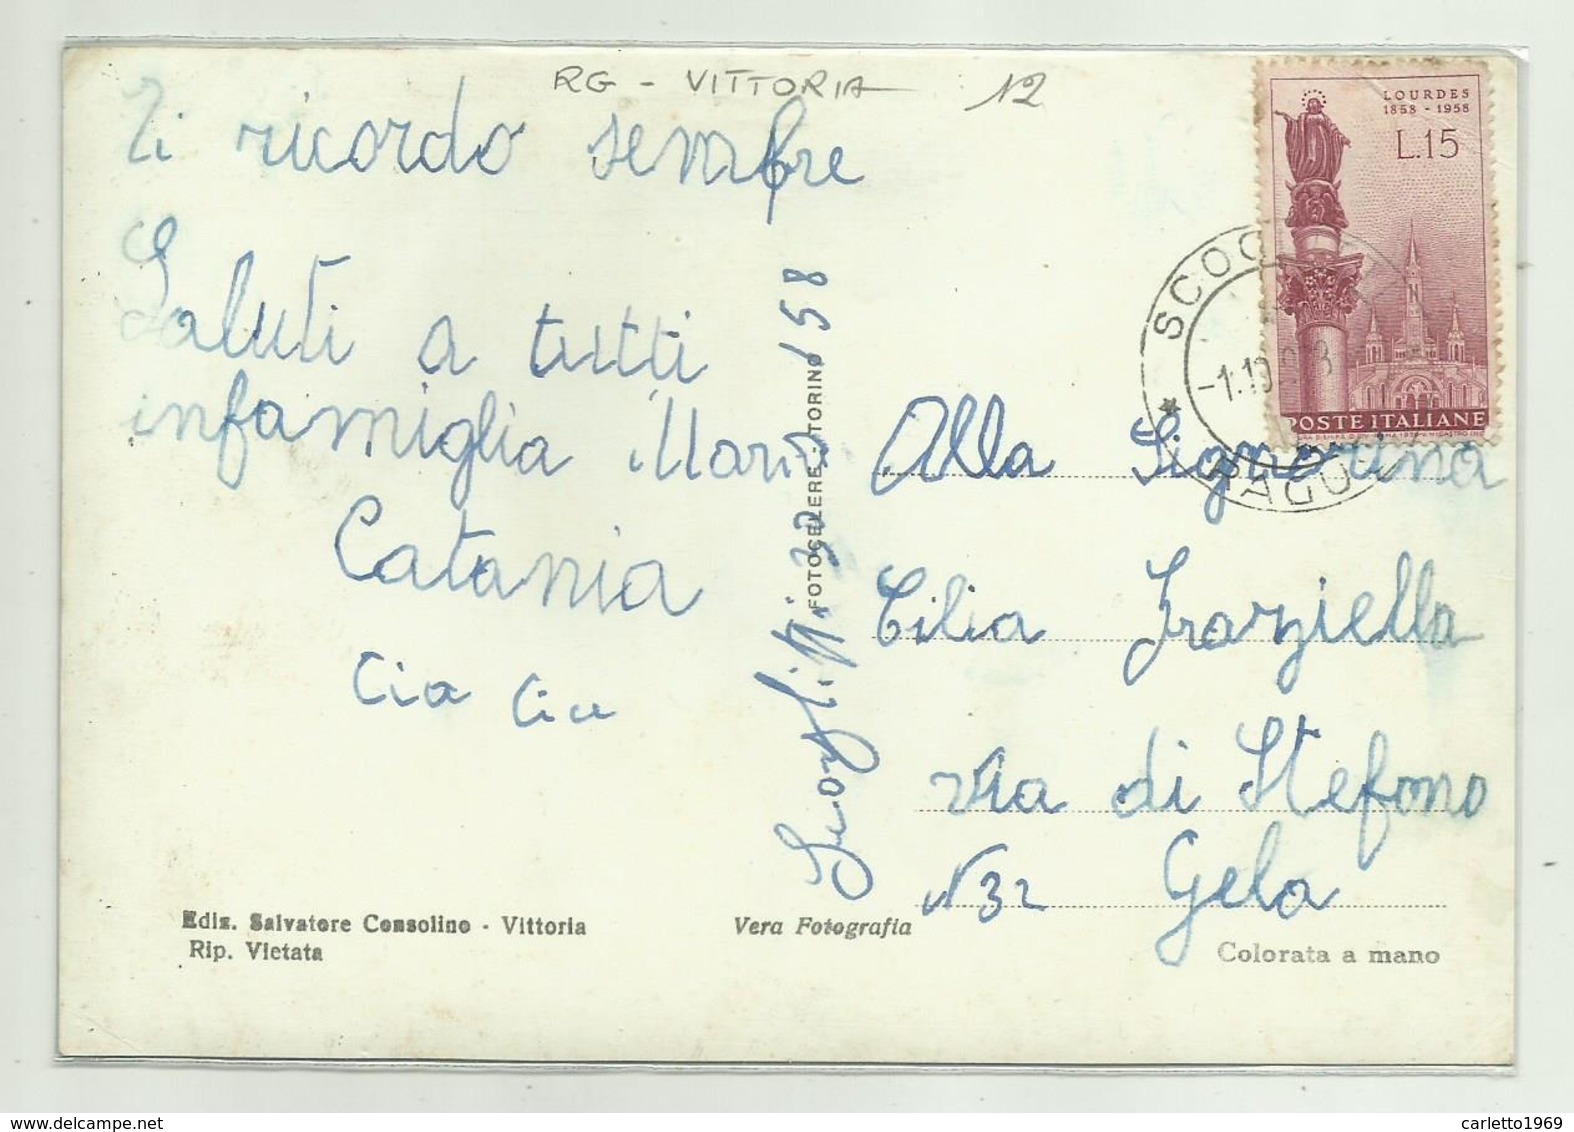 RG - VITTORIA 12
Ti ricordo sempre
Saluti a tutti
infamiglia Maria
Catania
Cia Cia
Scoglitti 30 / 58
FOTOCELERE - TORINO
LOURDES
1858 - 1958
L.15
POSTE ITALIANE
SCOG
RAGU
Alla Signorina
Cilia Graziella
via di Stefono
N 32 Gela
Ediz. Salvatore Consolino - Vittoria
Rip. Vietata
Vera Fotografia
Colorata a mano
carletto1969